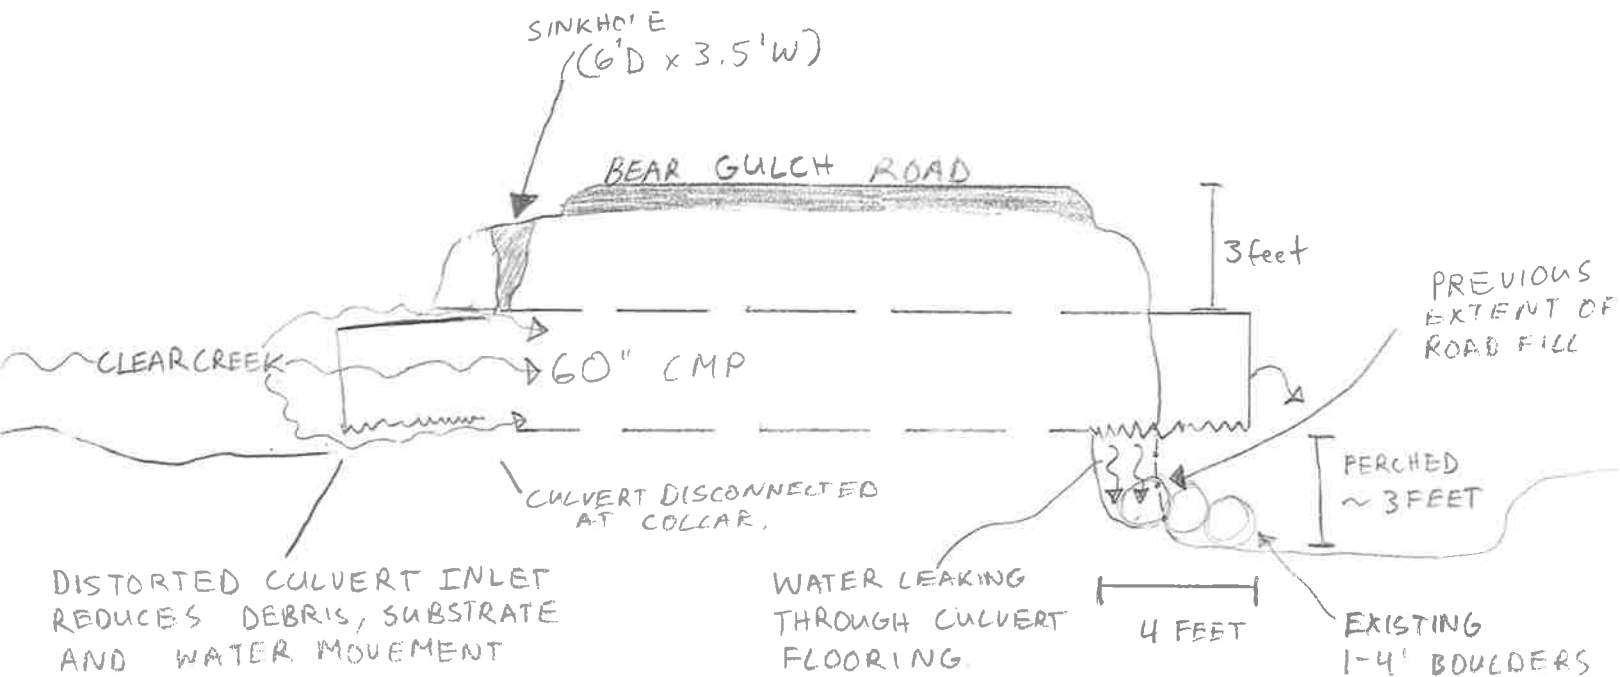 SINKHOLE
(6'D x 3.5'W)
BEAR GULCH ROAD
3 feet
PREVIOUS
EXTENT OF
ROAD FILL
CLEAR CREEK
60" CMP
PERCHED
~ 3 FEET
CULVERT DISCONNECTED
AT COLLAR.
DISTORTED CULVERT INLET
REDUCES DEBRIS, SUBSTRATE
AND WATER MOVEMENT
WATER LEAKING
THROUGH CULVERT
FLOORING
4 FEET
EXISTING
1-4' BOULDERS